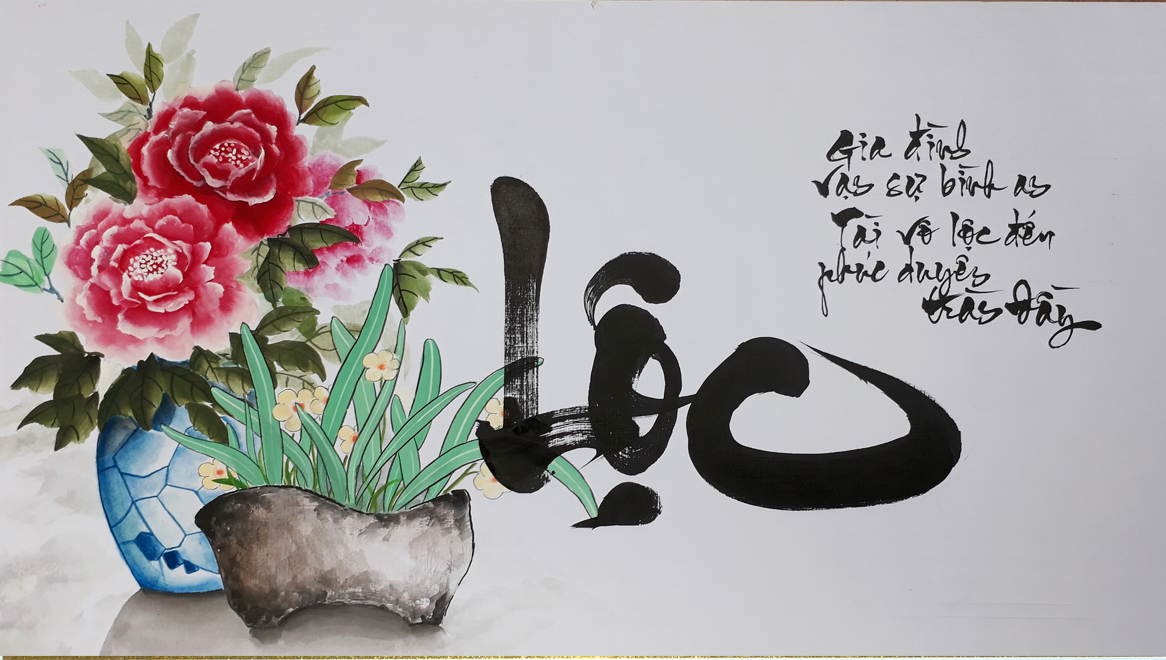 Lộc
Gia đình
vạn sự bình an
Tài về lộc đến
phúc duyên
tràn đầy